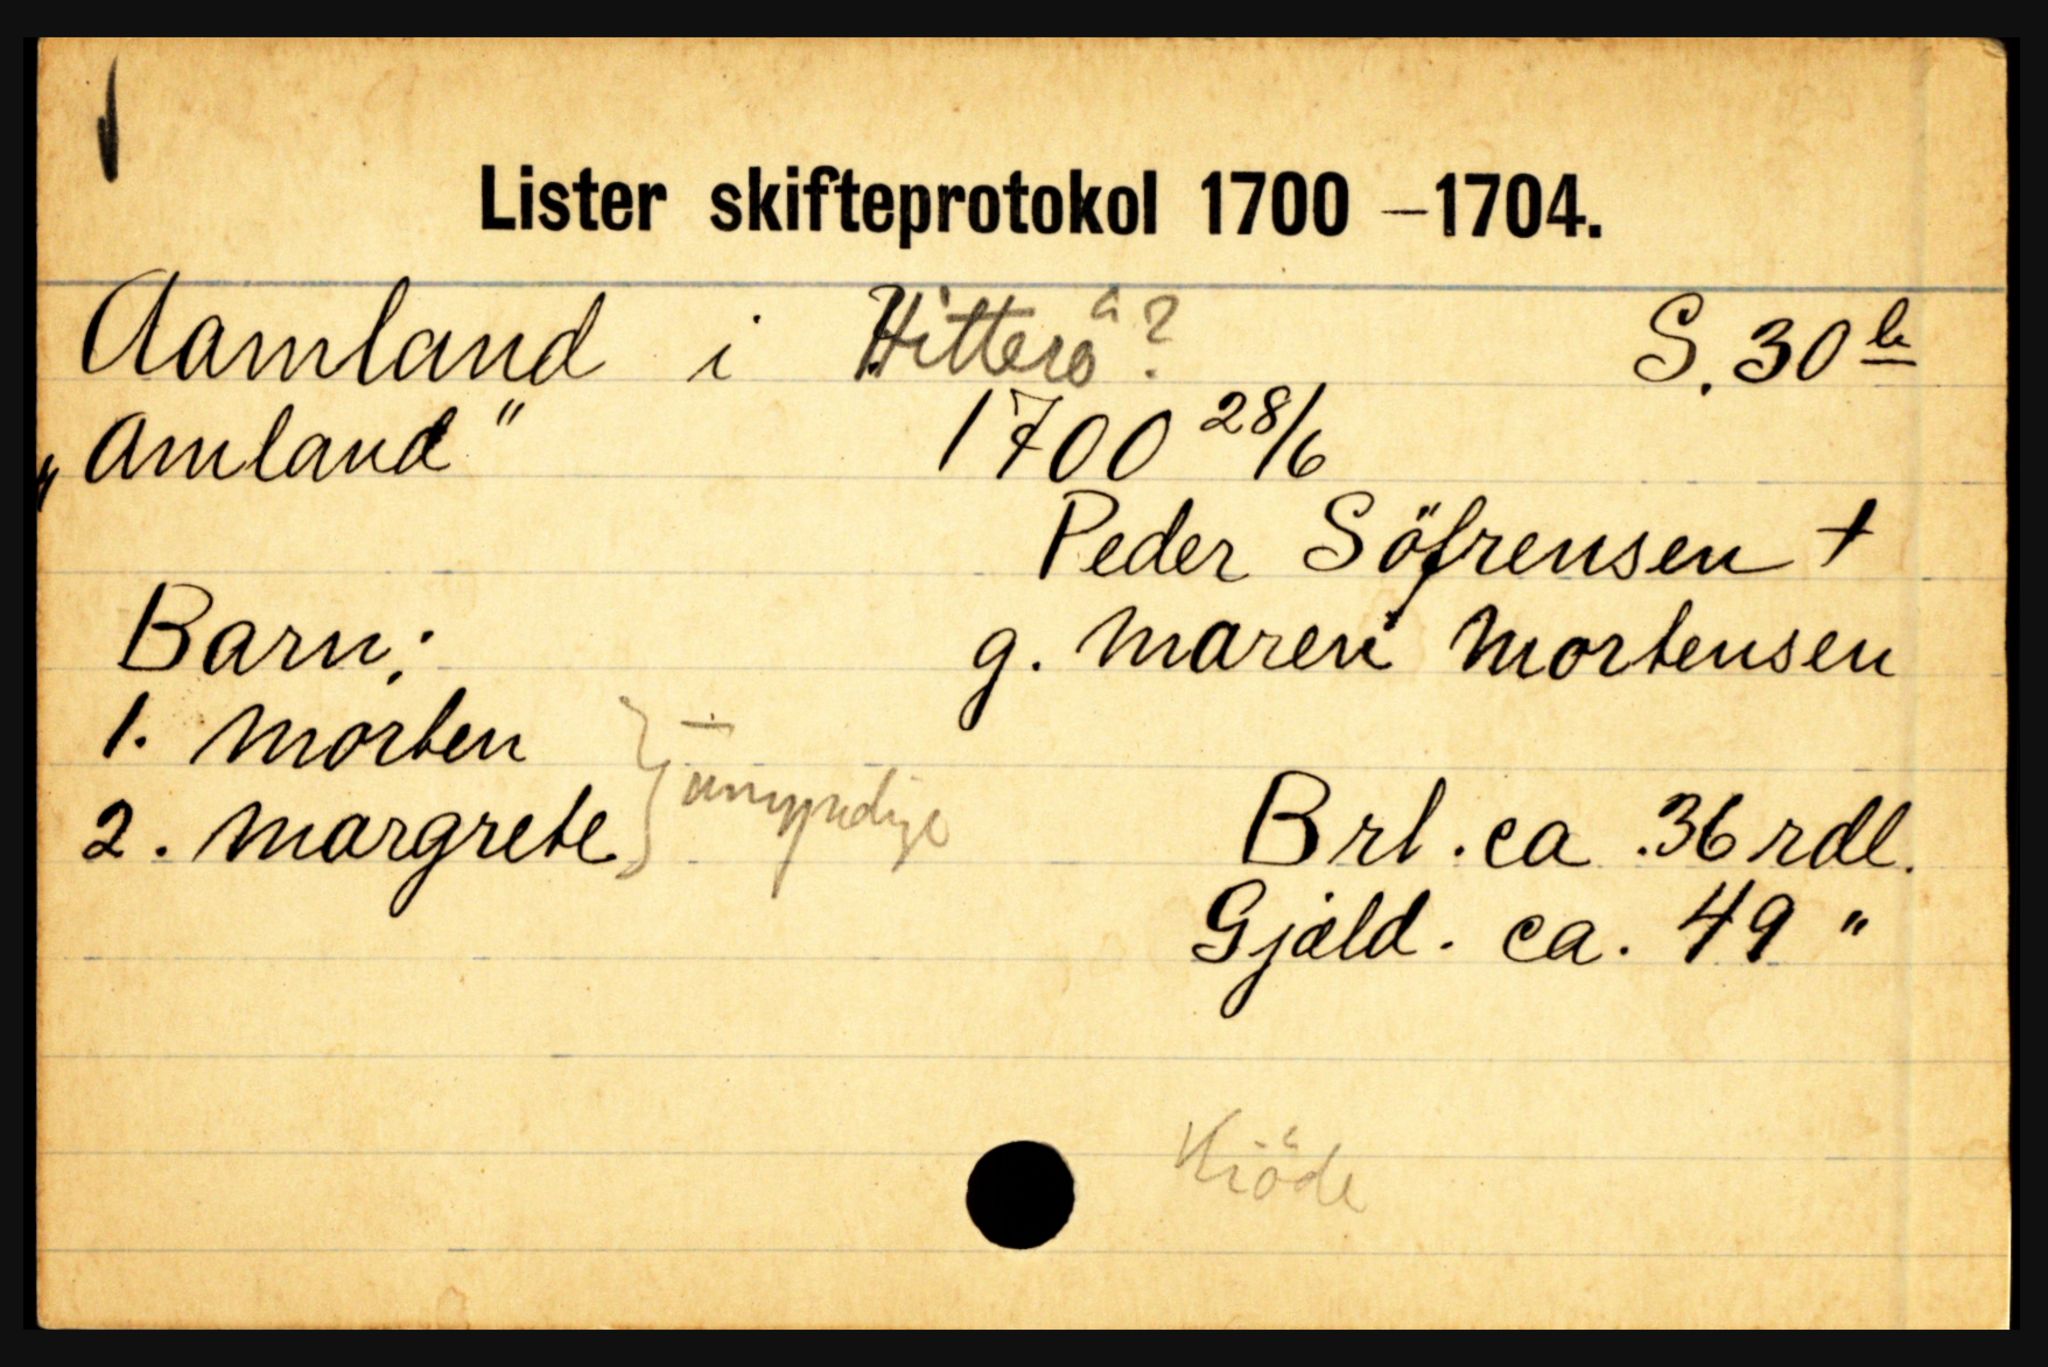 Lister skifteprotokol 1700 –1704.
Aamland i Hitterö? S. 30 b
"Amland" 1700 28/6
Peder Söfrensen +
Barn: g. Maren Mortensen
1. Morten
2. Margrete } umyndige
Brl. ca. 36 rdl.
Gjæld. ca. 49 "